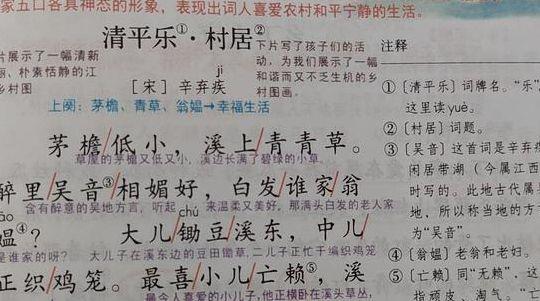 家五口各具神态的形象，表现出词人喜爱农村和平宁静的生活。
清平乐①·村居②
片展示了一幅清新
丽、朴素恬静的江
乡村图
下片写了孩子们的活
动，为我们展示了一幅
和谐而又不乏生机的乡
村图画。
jí
［宋］辛弃疾
上阕：茅檐、青草、翁媪→幸福生活
茅檐/低小，溪上/青青草。
草屋的茅檐又低又小，溪边长满了碧绿的小草。
醉里/吴音③/相媚好，白发/谁家/翁
含有醉意的吴地方言，听起来温柔又美好，那满头白发的老人家
ǎo
chú
媪④？大儿/锄豆/溪东，中儿/
是谁家的呀？大儿子在溪东边的豆田锄草，二儿子正忙于编织鸡笼
正织/鸡笼。最喜/小儿/亡赖⑤，溪
最令人喜爱的小儿子，他正横卧在溪头草丛，
注释
①〔清平乐〕词牌名。“乐”
这里读yuè。
②〔村居〕词题。
③〔吴音〕这首词是辛弃疾
闲居带湖（今属江西
时写的。此地古代属吴
地，所以称当地的方言
为“吴音”。
④〔翁媪〕老翁和老妇。
⑤〔亡赖〕同“无赖”，这
指顽皮、淘气。“亡